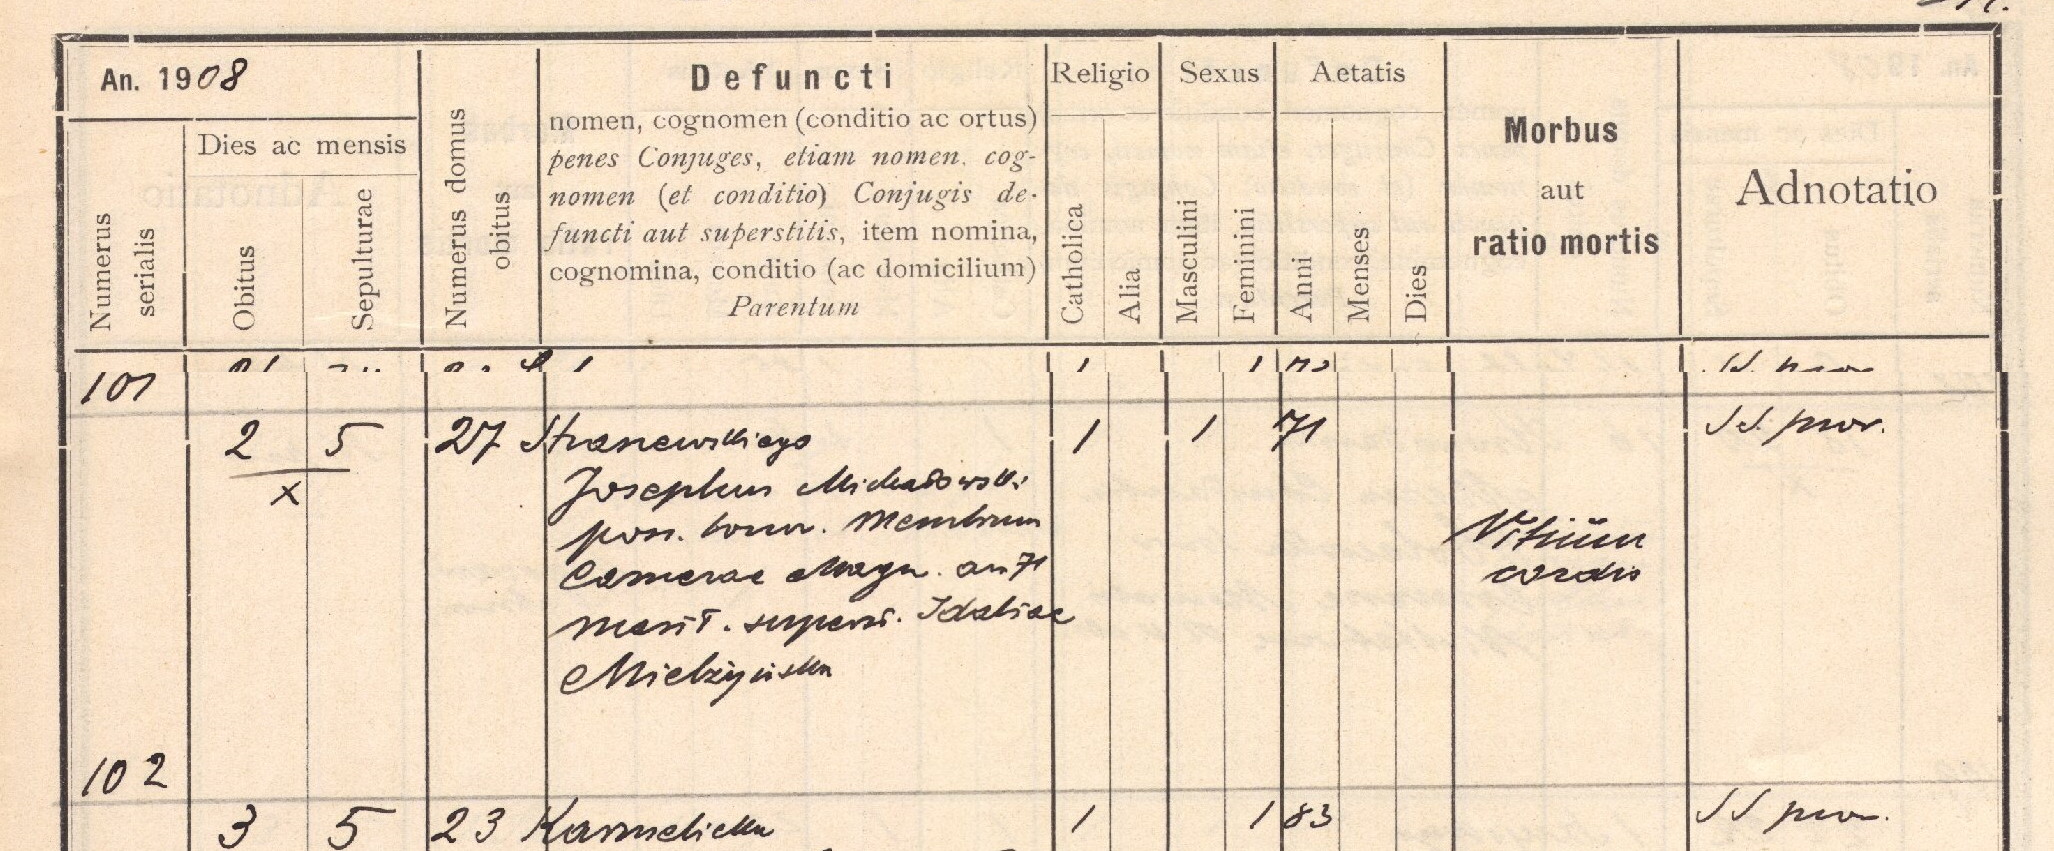 An. 1908
Numerus serialis
Dies ac mensis
Obitus
Sepulturae
Numerus domus obitus
Defuncti
nomen, cognomen (conditio ac ortus)
penes Conjuges, etiam nomen, cog-
nomen (et conditio) Conjugis de-
functi aut superstitis, item nomina,
cognomina, conditio (ac domicilium)
Parentum
Religio
Catholica
Alia
Sexus
Masculini
Feminini
Aetatis
Anni
Menses
Dies
Morbus
aut
ratio mortis
Adnotatio
101
2 5 27 Straszewskiego 1 1 71 SS. prov.
x
Josephus Michałowski
poss. bonor. Membrum
Camerae Magn. an 71
marit. superst. Idaliae
Mielżyńska
Vitium
cordis
102
3 5 23 Karmelicka 1 1 83 SS prov.